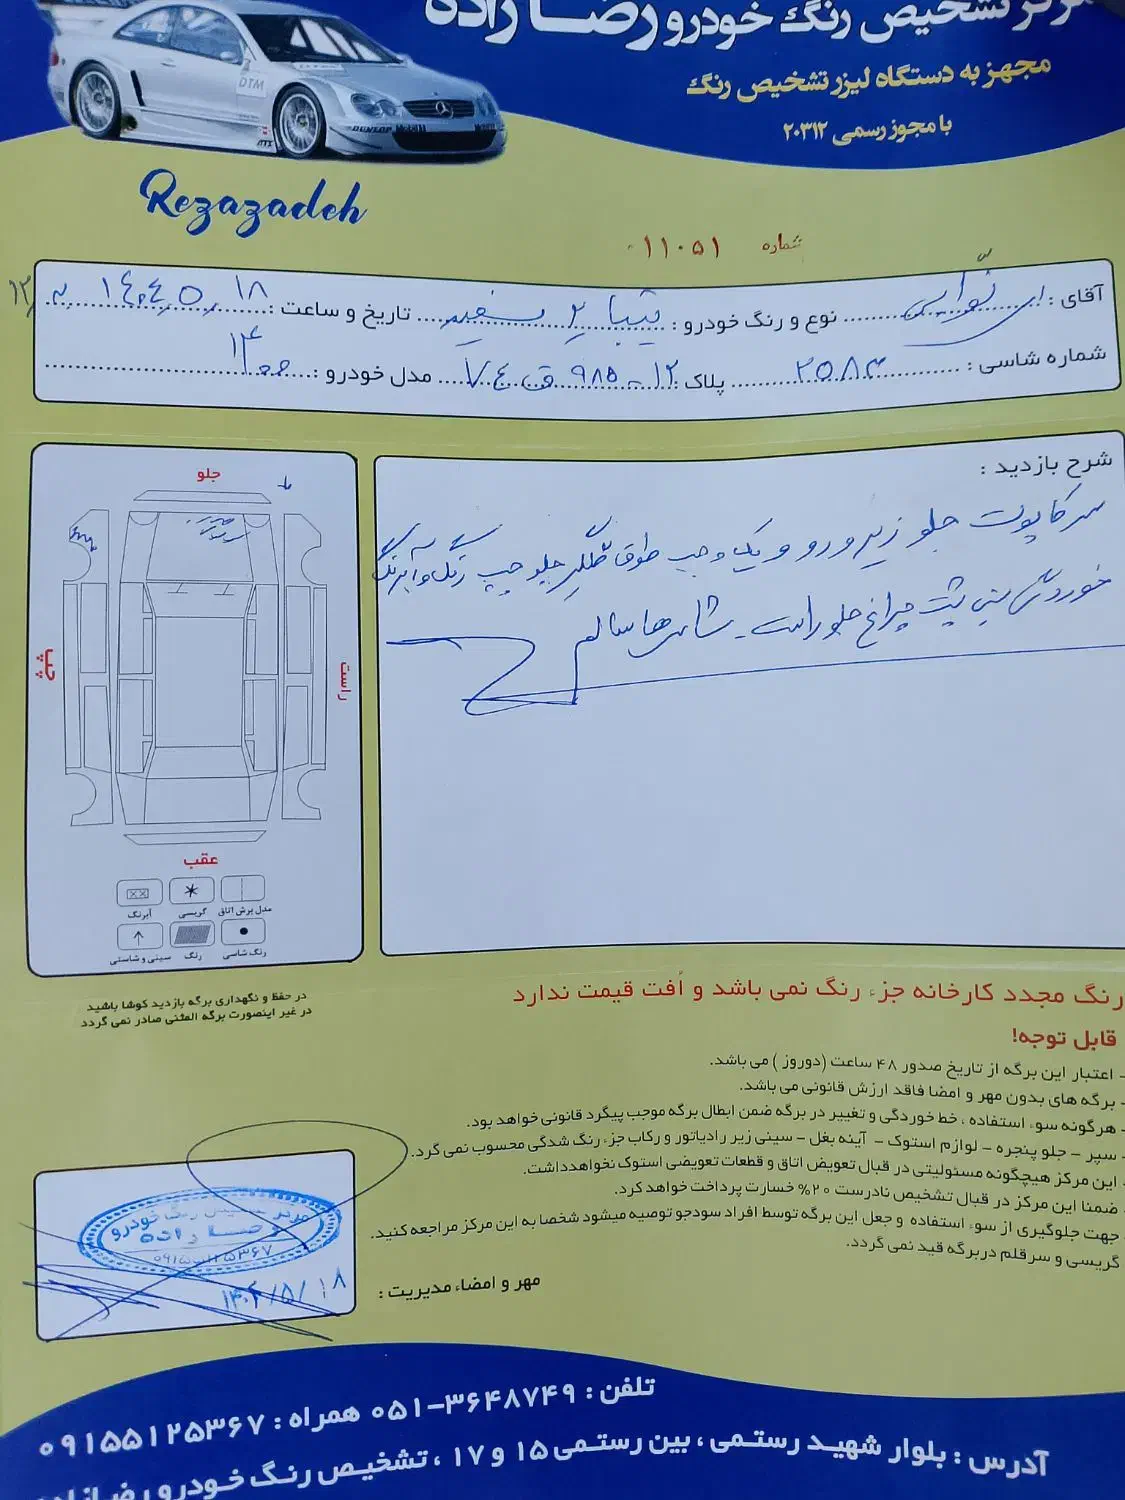 مرکز تشخیص رنگ خودرو رضا زاده
مجهز به دستگاه لیزر تشخیص رنگ
با مجوز رسمی ۲۰۳۱۲
DTM
DUNLOP Mobil
Rezazadeh
شماره ۱۱۰۵۱۰
آقای : نوع و رنگ خودرو : تیبا ۲ سفید تاریخ و ساعت : ۱۴۰۴٫۵٫۱۸ ۱۲
شماره شاسی : ۲۵۸۳ پلاک : ۱۲ - ۹۸۵ ق ۷۴ مدل خودرو : ۱۴۰۰
شرح بازدید :
سر کاپوت جلو زیر و رو و یک وجب طوق گلگیر جلو چپ رنگ و آبرنگ
خوردگی سینی پشت چراغ جلو راست - شاسی ها سالم
جلو
چپ
راست
عقب
آبرنگ گریسی مدل برش اتاق
سینی و شاستی رنگ رنگ شاسی
در حفظ و نگهداری برگه بازدید کوشا باشید
در غیر اینصورت برگه المثنی صادر نمی گردد
رنگ مجدد کارخانه جزء رنگ نمی باشد و اُفت قیمت ندارد
قابل توجه!
- اعتبار این برگه از تاریخ صدور ۴۸ ساعت (دوروز ) می باشد.
- برگه های بدون مهر و امضا فاقد ارزش قانونی می باشد.
- هرگونه سوء استفاده ، خط خوردگی و تغییر در برگه ضمن ابطال برگه موجب پیگرد قانونی خواهد بود.
- سپر - جلو پنجره - لوازم استوک - آینه بغل - سینی زیر رادیاتور و رکاب جزء رنگ شدگی محسوب نمی گردد.
- این مرکز هیچگونه مسئولیتی در قبال تعویض اتاق و قطعات تعویضی استوک نخواهدداشت.
- ضمنا این مرکز در قبال تشخیص نادرست ۲۰% خسارت پرداخت خواهد کرد.
- جهت جلوگیری از سوء استفاده و جعل این برگه توسط افراد سودجو توصیه میشود شخصا به این مرکز مراجعه کنید.
- گریسی و سرقلم دربرگه قید نمی گردد.
مهر و امضاء مدیریت :
مرکز تشخیص رنگ خودرو
رضا زاده
۰۹۱۵۵۱۲۵۳۶۷
۱۴۰۴/۵/۱۸
تلفن : ۳۶۴۸۷۴۹-۰۵۱ همراه : ۰۹۱۵۵۱۲۵۳۶۷
آدرس : بلوار شهید رستمی ، بین رستمی ۱۵ و ۱۷ ، تشخیص رنگ خودرو رضازاده